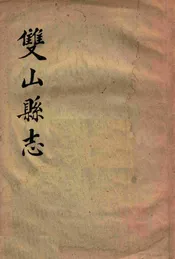 雙山縣志